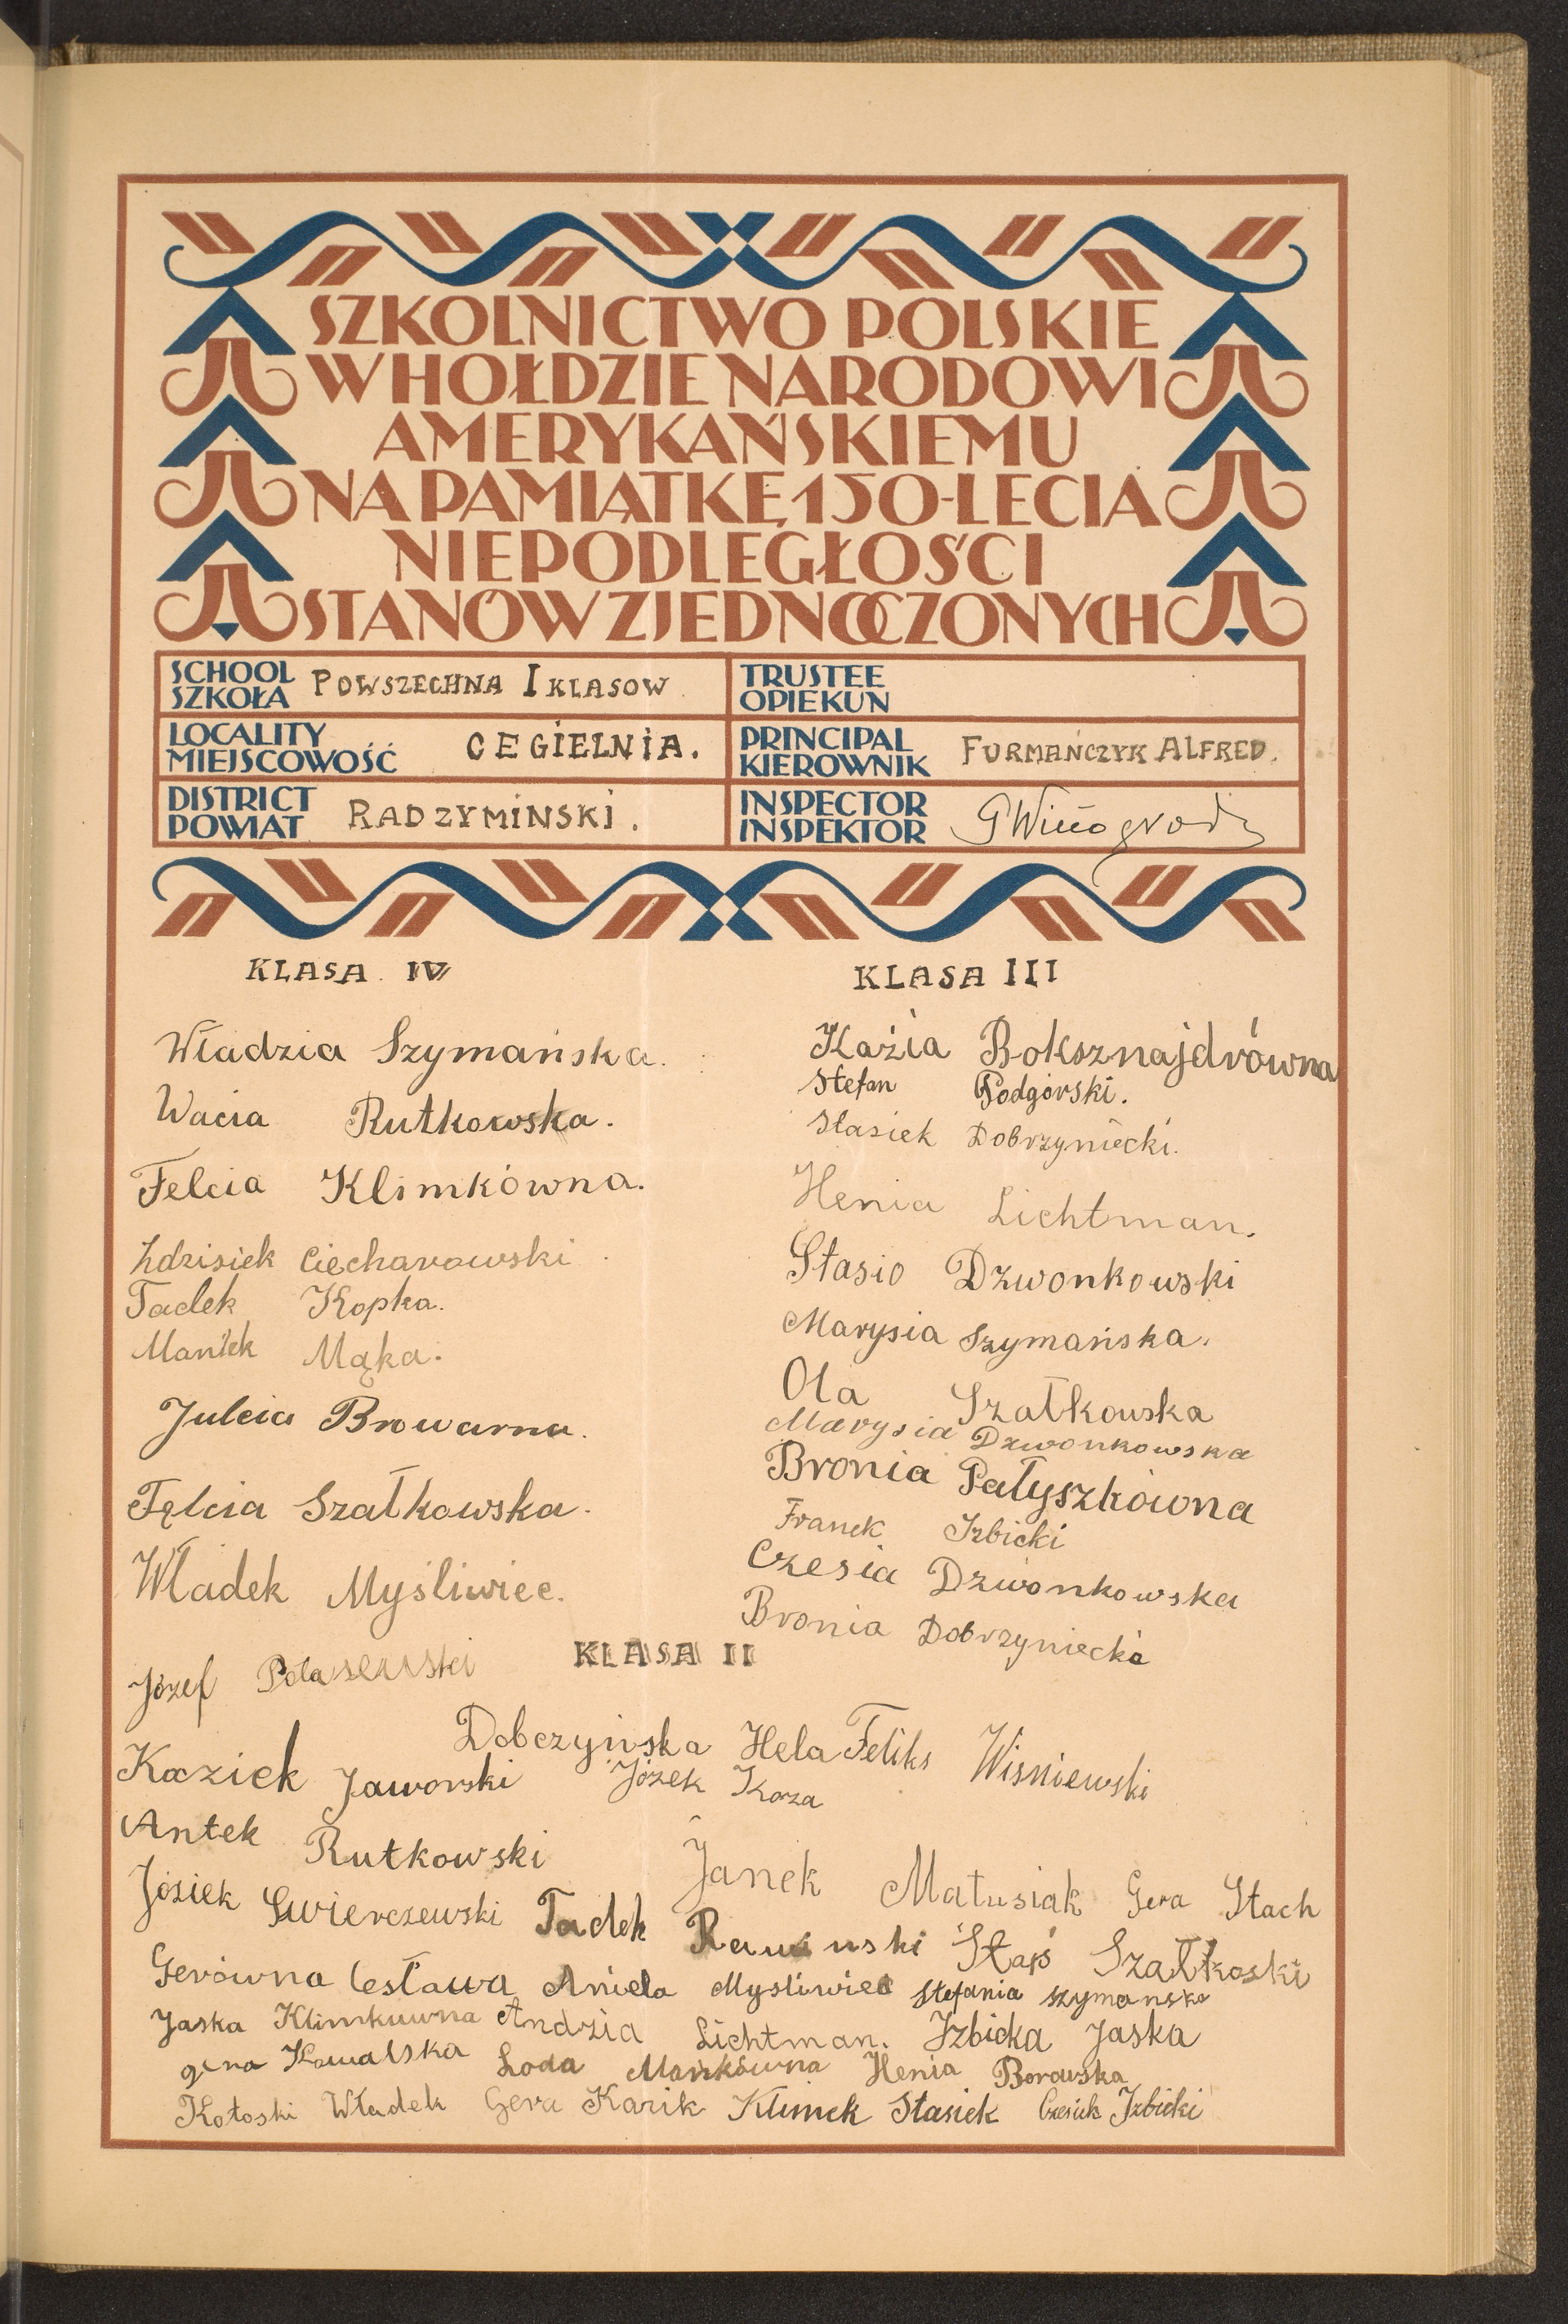 SZKOLNICTWO POLSKIE
W HOŁDZIE NARODOWI
AMERYKAŃSKIEMU
NA PAMIĄTKĘ 150-LECIA
NIEPODLEGŁOŚCI
STANÓW ZJEDNOCZONYCH
SCHOOL
SZKOŁA
POWSZECHNA I KLASOW.
TRUSTEE
OPIEKUN
LOCALITY
MIEJSCOWOŚĆ
CEGIELNIA.
PRINCIPAL
KIEROWNIK
FURMAŃCZYK ALFRED.
DISTRICT
POWIAT
RADZYMINSKI.
INSPECTOR
INSPEKTOR
KLASA IV
Władzia Szymańska.
Wacia Rutkowska.
Felcia Klimkówna.
Zdzisiek Ciecharowski.
Tadek Kopka.
Maniek Mąka.
Julcia Browarna.
Felcia Szatkowska.
Władek Myśliwiec.
Józef
KLASA III
Kazia Boksznajdrówna
Stefan Podgórski.
Stasiek Dobrzyniecki.
Henia Lichtman.
Stasio Dzwonkowski
Marysia Szymańska.
Ola Szatkowska
Marysia Dzwonkowska
Bronia Pałyszkówna
Franek Izbicki
Czesia Dzwonkowska
Bronia Dobrzyniecka
KLASA II
Dobczyńska Hela Feliks Wisniewski
Kaziek Jaworski Józek Koza
Antek Rutkowski
Janek Matusiak Gera Stach
Józiek Swierczewski Tadek Staś Szatkoski
Gerówna Cesława Aniela Mysliwiec Stefania Szymanska
Jaska Klimkuwna Andzia Lichtman. Izbicka Jaska
gina Kowalska Loda Mankówna Henia Borowska
Kotoski Władek Gera Kazik Klimek Stasiek Czesiek Izbicki